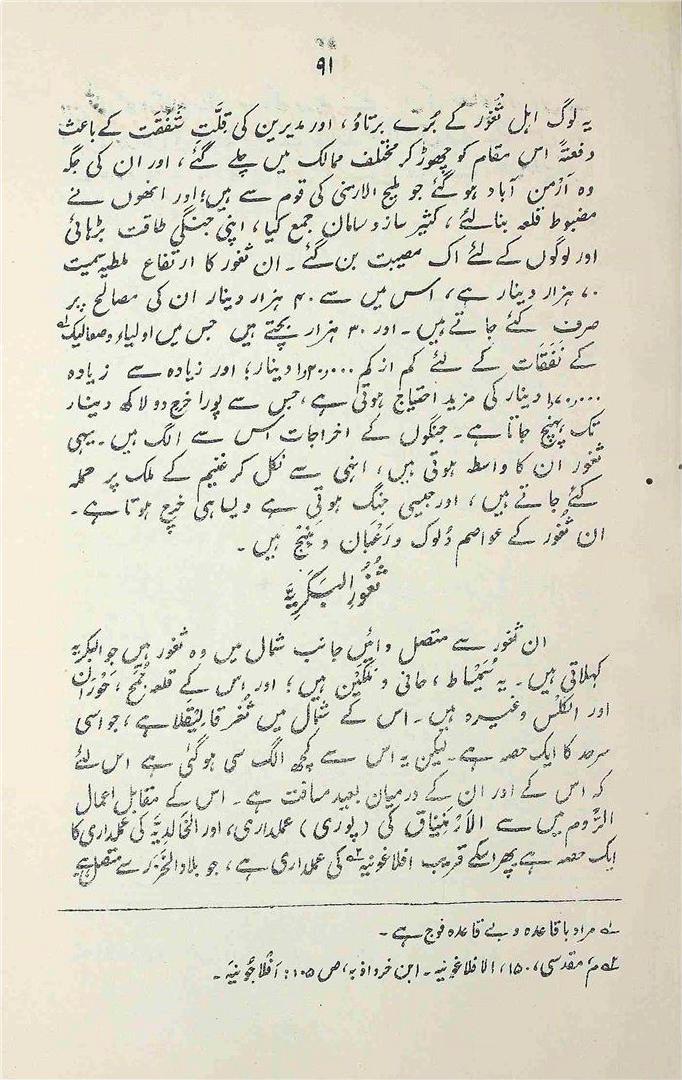 ۹۱
یہ لوگ اہل ثُغُور کے بُرے برتاؤ ، اور مدیرین کی قلَّتِ شَفْقَت کے باعث
دفعتہً اس مقام کو چھوڑ کر مختلف ممالک میں چلے گئے ، اور ان کی جگہ
وہ اَرْمن آباد ہو گئے جو ملیح الارمنی کی قوم سے ہیں ؛ اور انھوں نے
مضبوط قلعہ بنالئے ، کثیر ساز و سامان جمع کیا ، اپنی جنگی طاقت بڑہائی
اور لوگوں کے لئے اک مصیبت بن گئے ۔ ان ثغور کا ارتفاع ملطیہ سمیت
۷۰ ہزار دینار ہے ، اس میں سے ۴۰ ہزار دینار ان کی مصالح پر
صرف کئے جاتے ہیں ۔ اور ۳۰ ہزار بچتے ہیں جس میں اولیاء وصعالیک ؎۱
کے نَفَقَات کے لئے کم از کم ۱٫۲۰٫۰۰۰ دینار ؛ اور زیادہ سے زیادہ
۱٫۷۰٫۰۰۰ دینار کی مزید احتیاج ہوتی ہے ، جس سے پورا خرچ دو لاکھ دینار
تک پہنچ جاتا ہے ۔ جنگوں کے اخراجات اس سے الگ ہیں ۔ یہی
ثغور ان کا واسطہ ہوتی ہیں ، انہی سے نکل کر غنیم کے ملک پر حملہ
کئے جاتے ہیں ، اور جیسی جنگ ہوتی ہے ویسا ہی خرچ ہوتا ہے ۔
ان ثُغُور کے عواصم دُلوک و رَعْبان و مَنْبِج ہیں ۔
ثُغُور البَکَرِیَّہ
ان ثغور سے متصل دائیں جانب شمال میں وہ ثغور ہیں جو البکریہ
کہلاتی ہیں ۔ یہ سُمَیْساط ، حانی و مَلِکَیْن ہیں ؛ اور اس کے قلعہ جُمَح ، حَوْران
اور الکلس وغیرہ ہیں ۔ اس کے شمال میں ثَغْر قالیقلا ہے ، جو اسی
سرحد کا ایک حصہ ہے ۔ لیکن یہ اس سے کچھ الگ سی ہو گئی ہے اس لئے
کہ اس کے اور ان کے درمیان بعید مسافت ہے ۔ اس کے مقابل اعمال
الرُّوم میں سے الاَرْمَنْیاق کی (پوری) عملداری ، اور الخَالِدِیَّہ کی عملداری کا
ایک حصہ ہے پھر اسکے قریب افلاغونیہ ؎۲ کی عملداری ہے ، جو بلاد الخَزَر سے متصل ہے
؎۱ مراد باقاعدہ و بے قاعدہ فوج ہے ۔
؎۲ مقدسی ، ۱۵۰ ، الافلاغونیہ ۔ ابن خرداذبہ ، ص ۱۰۵ : اَفْلاجُونِیَہ ۔